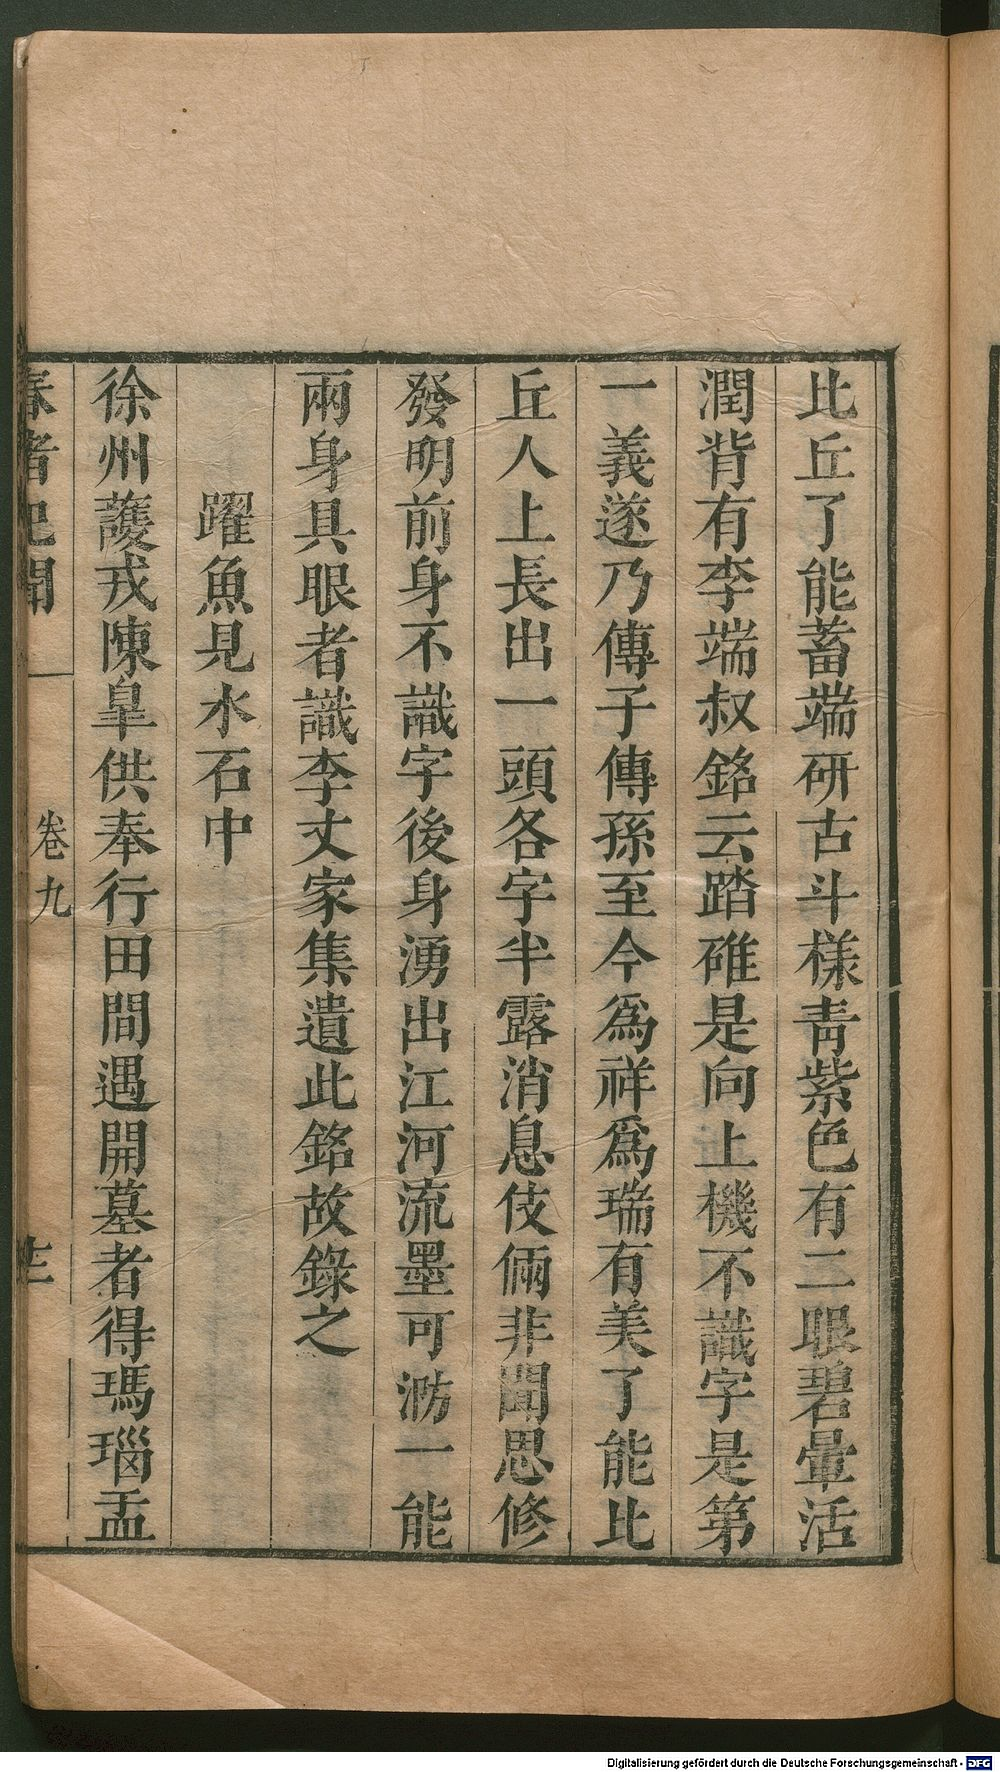 比丘了能蓄端研古斗樣青紫色有二眼碧暈活
潤背有李端叔銘云踏碓是向上機不識字是第
一義遂乃傳子傳孫至今爲祥爲瑞有美了能比
丘人上長出一頭各字半露消息伎倆非聞思修
發明前身不識字後身湧出江河流墨可泐一能
兩身具眼者識李丈家集遺此銘故錄之
躍魚見水石中
徐州護戎陳臯供奉行田間遇開墓者得瑪瑙盂
春渚紀聞 卷九
Digitalisierung gefördert durch die Deutsche Forschungsgemeinschaft - DFG